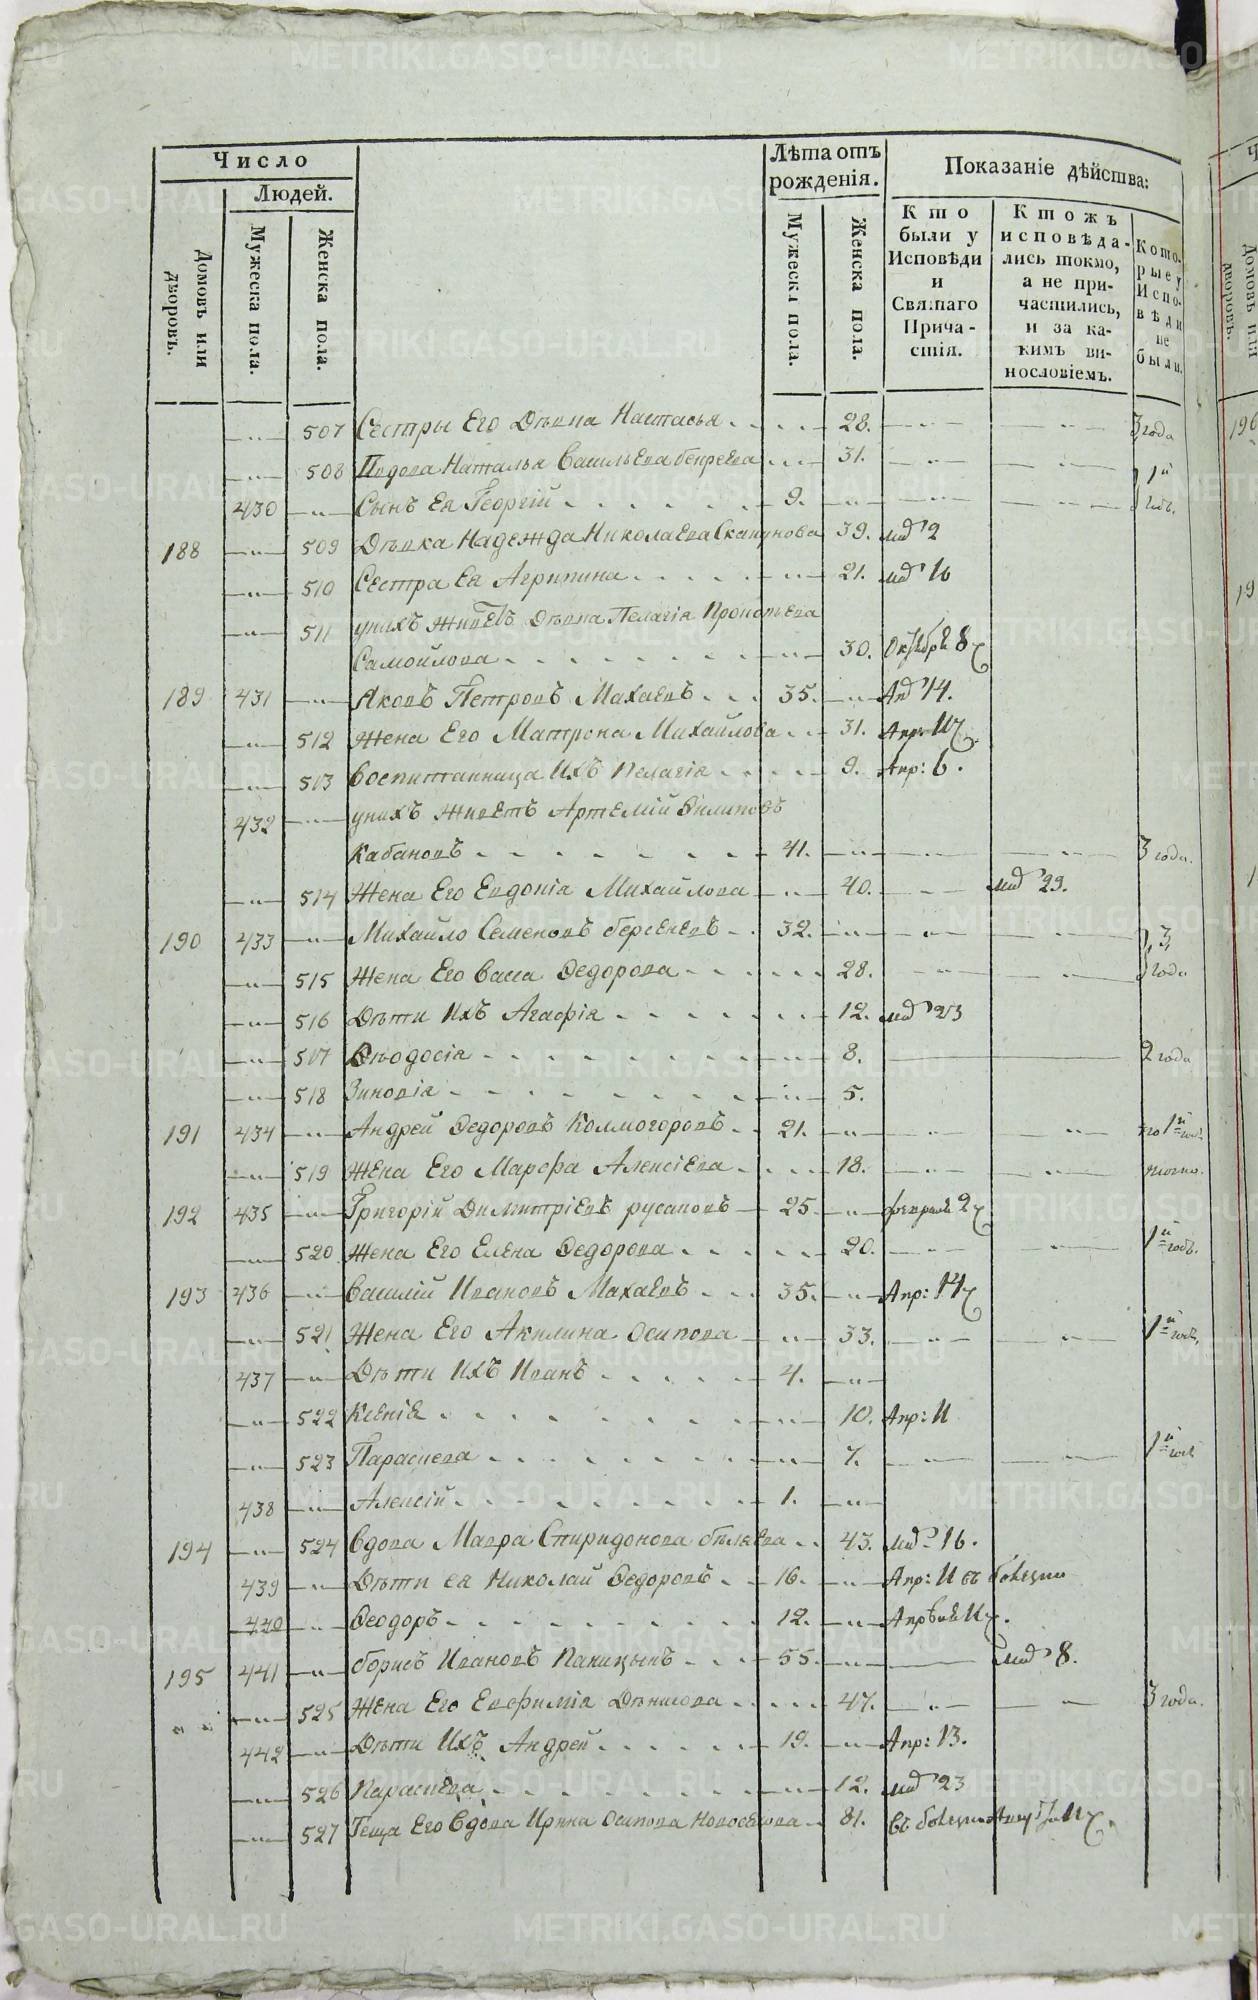 Число
Людей.
Домовъ или дворовъ.
Мужеска пола.
Женска пола.
Лѣта отъ рожденія.
Мужеска пола.
Женска пола.
Показаніе дѣйства:
Кто были у Исповѣди и Святаго Причастія.
Ктожъ исповѣдались токмо, а не причастились, и за какимъ винословіемъ.
Которые у Исповѣди не были.
507 Сестры Его Дѣвка Настасья 28. 3 года
508 Вдова Наталья Васильева 31. 1й
430 Сынъ Ея Георгій 9. годъ.
188 509 Дѣвка Надежда Николаева Скапунова 39. 2
510 Сестра Ея Агрипина 21. 16
511 унихъ живетъ Дѣвка Пелагія Прокопьева
Самойлова 30. Октября 8
189 431 Яковъ Петровъ Махаевъ 35. 14.
512 Жена Его Матрона Михайлова 31. Апр: 11
513 Воспитанница Ихъ Пелагія 9. Апр: 6.
432 унихъ живетъ Артемій Филиповъ
Кабановъ 41. 3 года.
514 Жена Его Евдокія Михайлова 40. 29.
190 433 Михайло Семеновъ берсеневъ 32. 3
515 Жена Его Васса Федорова 28. года
516 Дѣти Ихъ Агафія 12. 23
517 Федосія 8. 2 года
518 Зиновія 5.
191 434 Андрей Федоровъ Колмогоровъ 21. по 1й год.
519 Жена Его Марфа Алексіева 18.
192 435 Григорій Димитріевъ русаковъ 25. февраля 2
520 Жена Его Елена Федорова 20. 1й годъ.
193 436 Василій Ивановъ Махаевъ 35. Апр: 14
521 Жена Его Акилина Осипова 33. 1й годъ,
437 Дѣти Ихъ Иванъ 4.
522 Ксенія 10. Апр: 11
523 Параскева 7. 1й годъ
438 Алексій 1.
194 524 Вдова Мавра Спиридонова бѣляева 43. 16.
439 Дѣти ея Николай Федоровъ 16. Апр: 11 въ болезни
440 Феодоръ 12. Апрѣля 11.
195 441 борисъ Ивановъ Паницынъ 55. 8.
525 Жена Его Евфимія Денисова 47. 3 года.
442 Дѣти Ихъ Андрей 19. Апр: 13.
526 Параскева 12. 23
527 Теща Его Вдова Ирина Осипова Новоселова 81. въ болезни 11